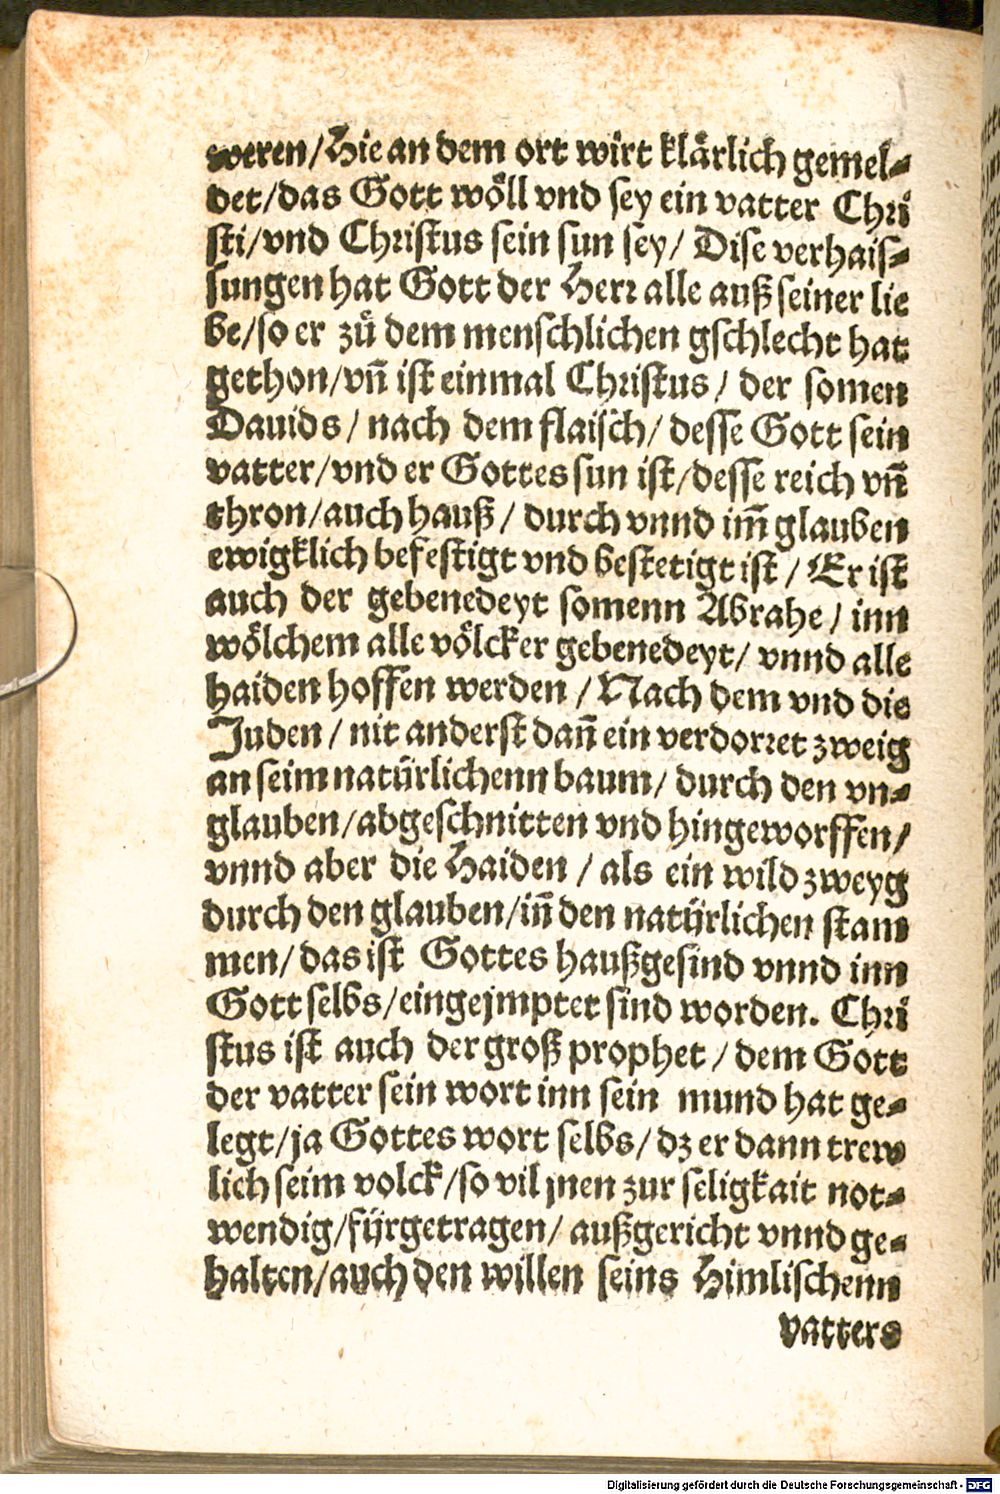 weren/Hie an dem ort wirt klårlich gemel⸗
det/das Gott wöll vnd sey ein vatter Chri
sti/vnd Christus sein sun sey/ Dise verhais⸗
sungen hat Gott der Herr alle auß seiner lie
be/so er zů dem menschlichen gschlecht hat
gethon/vñ ist einmal Christus/ der somen
Dauids/ nach dem flaisch/ desse Gott sein
vatter/vnd er Gottes sun ist/desse reich vñ
thron/auch hauß/ durch vnnd im̃ glauben
ewigklich befestigt vnd bestetigt ist/ Er ist
auch der gebenedeyt somenn Abrahe/ inn
wölchem alle völcker gebenedeyt/ vnnd alle
haiden hoffen werden/Nach dem vnd die
Juden/ nit anderst dañ ein verdorret zweig
an seim natůrlichenn baum/ durch den vn⸗
glauben/abgeschnitten vnd hingeworffen/
vnnd aber die Haiden/ als ein wild zweyg
durch den glauben/iñ den natÿrlichen stam
men/das ist Gottes haußgesind vnnd inn
Gott selbs/eingejmptet sind worden. Chri
stus ist auch der groß prophet/dem Gott
der vatter sein wort inn sein mund hat ge⸗
legt/ja Gottes wort selbs/dz er dann trew
lich seim volck/so vil jnen zur seligkait not⸗
wendig/fÿrgetragen/ außgericht vnnd ge⸗
halten/auch den willen seins Himlischenn
vatters
Digitalisierung gefördert durch die Deutsche Forschungsgemeinschaft - DFG